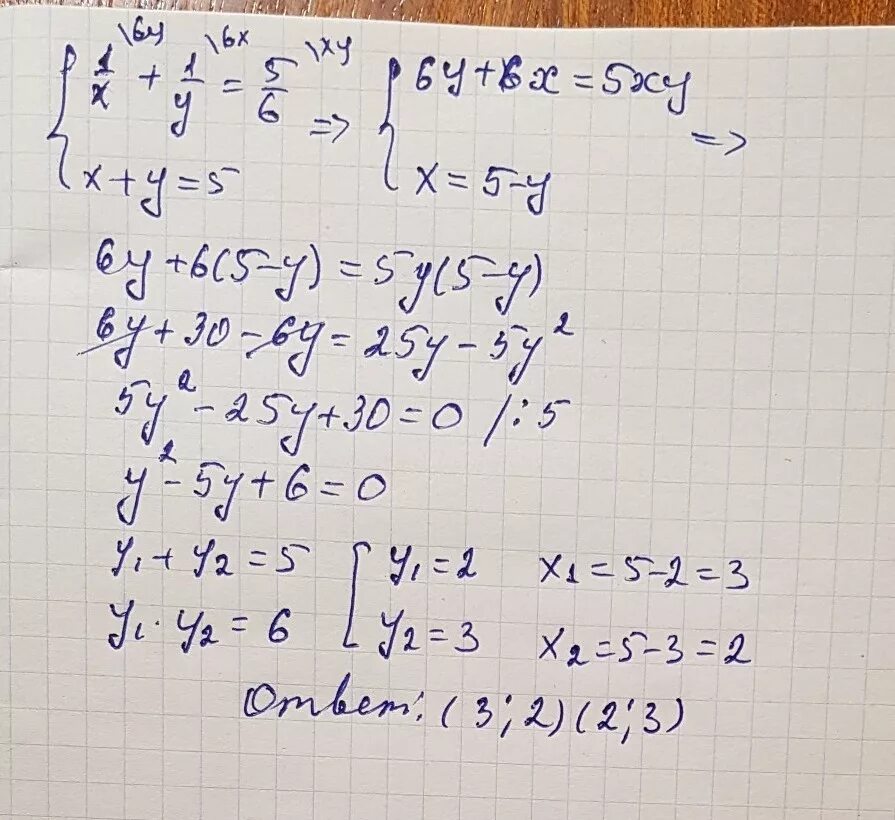 1/x \6y + 1/y \6x = 5/6 \xy => 6y + 6x = 5xy =>
x + y = 5 x = 5 - y
6y + 6(5 - y) = 5y(5 - y)
6y + 30 - 6y = 25y - 5y²
5y² - 25y + 30 = 0 /:5
y² - 5y + 6 = 0
y₁ + y₂ = 5 y₁ = 2 x₁ = 5 - 2 = 3
y₁ · y₂ = 6 y₂ = 3 x₂ = 5 - 3 = 2
Ответ: (3; 2) (2; 3)